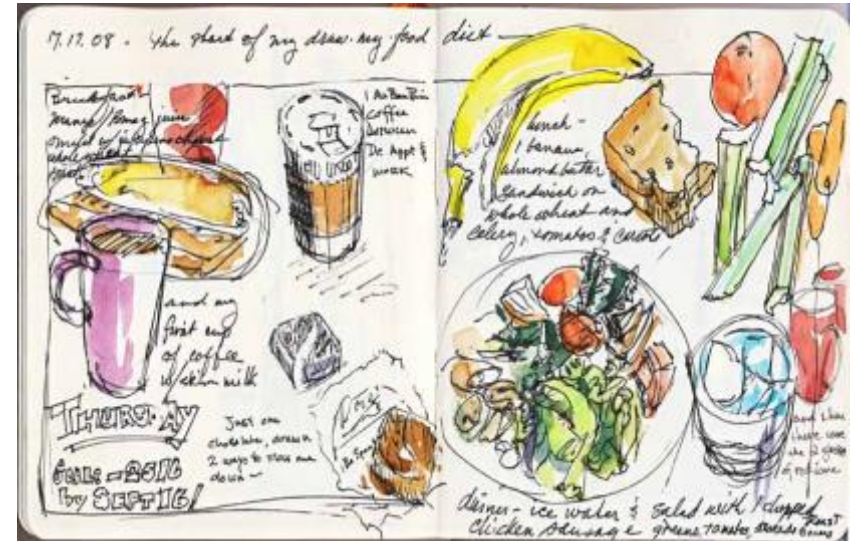 17.17.08 - the start of my draw-my-food diet -
Breakfast-
orange/ juice
omelet w/ cheese
whole wheat
1 Au Bon Pain
coffee
between
Dr. Appt &
work
and my
first cup
of coffee
w/skim milk
THURSDAY
GOAL - 25 lb
by SEPT 16!
Just one
chocolate, drawn
2 ways to slow me
down -
lunch -
1 banana,
almond butter
sandwich on
whole wheat and
celery, tomatos & carrots
and then
there were
the 2 glasses
of
dinner - ice water & salad with chopped
chicken sausage greens, tomatos,